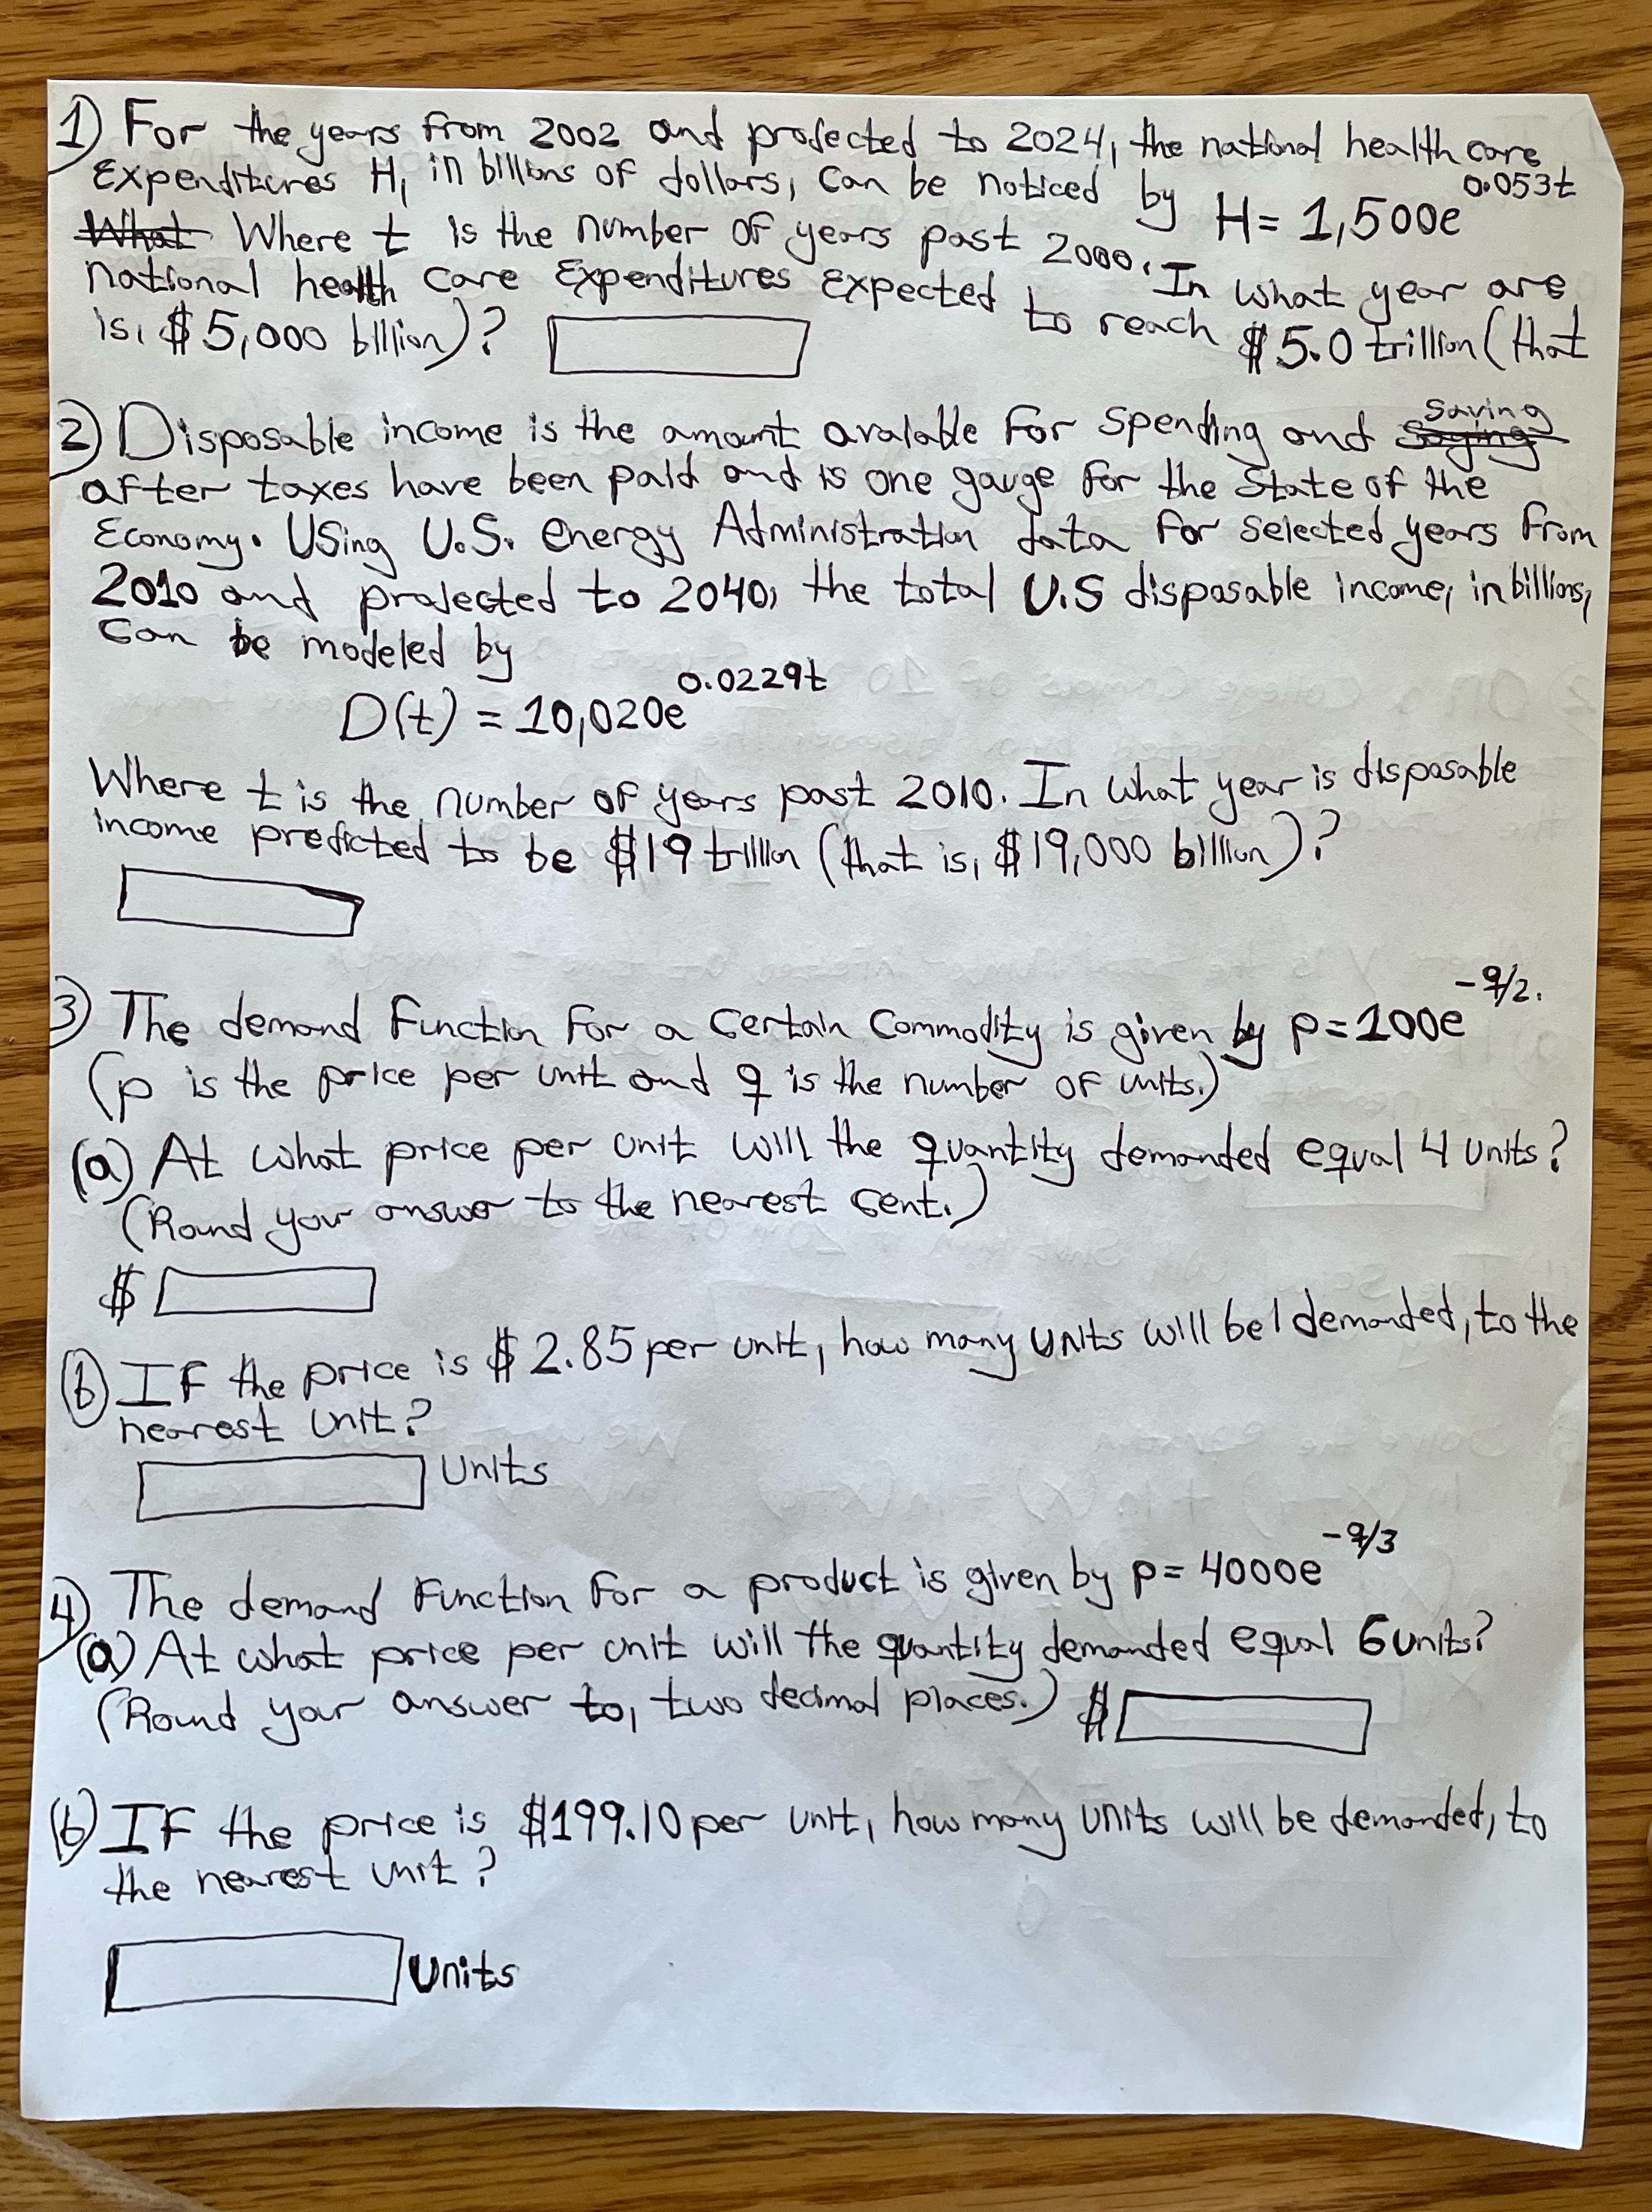 1) For the years from 2002 and projected to 2024, the national health care
Expenditures H, in billions of dollars, can be noticed by H = 1,500e^0.053t
What Where t is the number of years past 2000. In what year are
national health care Expenditures expected to reach $5.0 trillion (that
is, $5,000 billion)?
2) Disposable income is the amount avalable for spending and Saying saving
after taxes have been paid and is one gauge for the State of the
Economy. Using U.S. energy Administration data for selected years from
2010 and projected to 2040, the total U.S disposable income, in billions,
can be modeled by
D(t) = 10,020e^0.0229t
Where t is the number of years past 2010. In what year is disposable
income predicted to be $19 trillion (that is, $19,000 billion)?
3) The demand function for a certain commodity is given by p=100e^-q/2.
(p is the price per unit and q is the number of units.)
(a) At what price per unit will the quantity demanded equal 4 units?
(Round your answer to the nearest cent.)
$
(b) If the price is $2.85 per unit, how many units will be demanded, to the
nearest unit?
Units
4) The demand function for a product is given by p= 4000e^-q/3
(a) At what price per unit will the quantity demanded equal 6 units?
(Round your answer to, two decimal places.) $
(b) If the price is $199.10 per unit, how many units will be demanded, to
the nearest unit?
Units